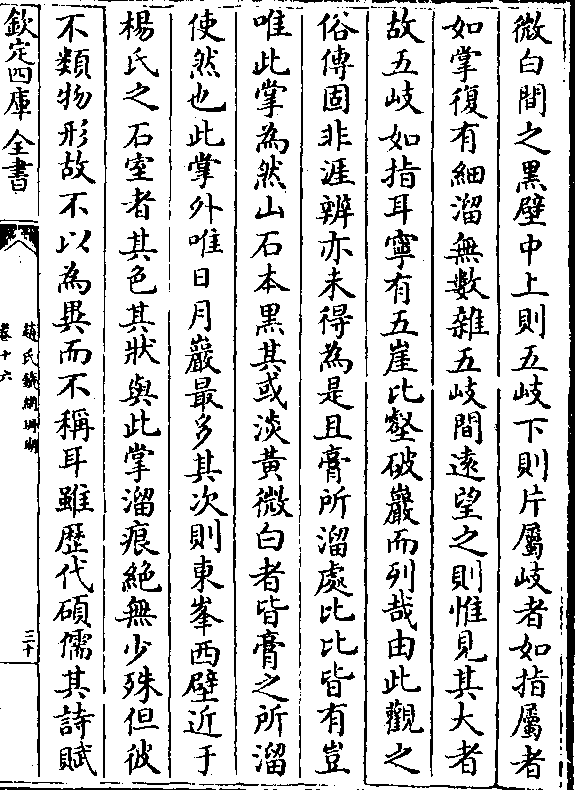 微白間之黑壁中上則五岐下則片屬岐者如指屬者
如掌復有細溜無數雜五岐間遠望之則惟見其大者
故五岐如指耳寧有五崖比壑破巖而列哉由此觀之
俗傳固非涯辨亦未得為是且膏所溜處比比皆有豈
唯此掌為然山石本黑其或淡黃微白者皆膏之所溜
使然也此掌外唯日月巖最多其次則東峯西壁近于
楊氏之石室者其色其狀與此掌溜痕絕無少殊但彼
不類物形故不以為異而不稱耳雖歴代碩儒其詩賦
欽定四庫全書
趙氏鐵網珊瑚
卷十六
三十